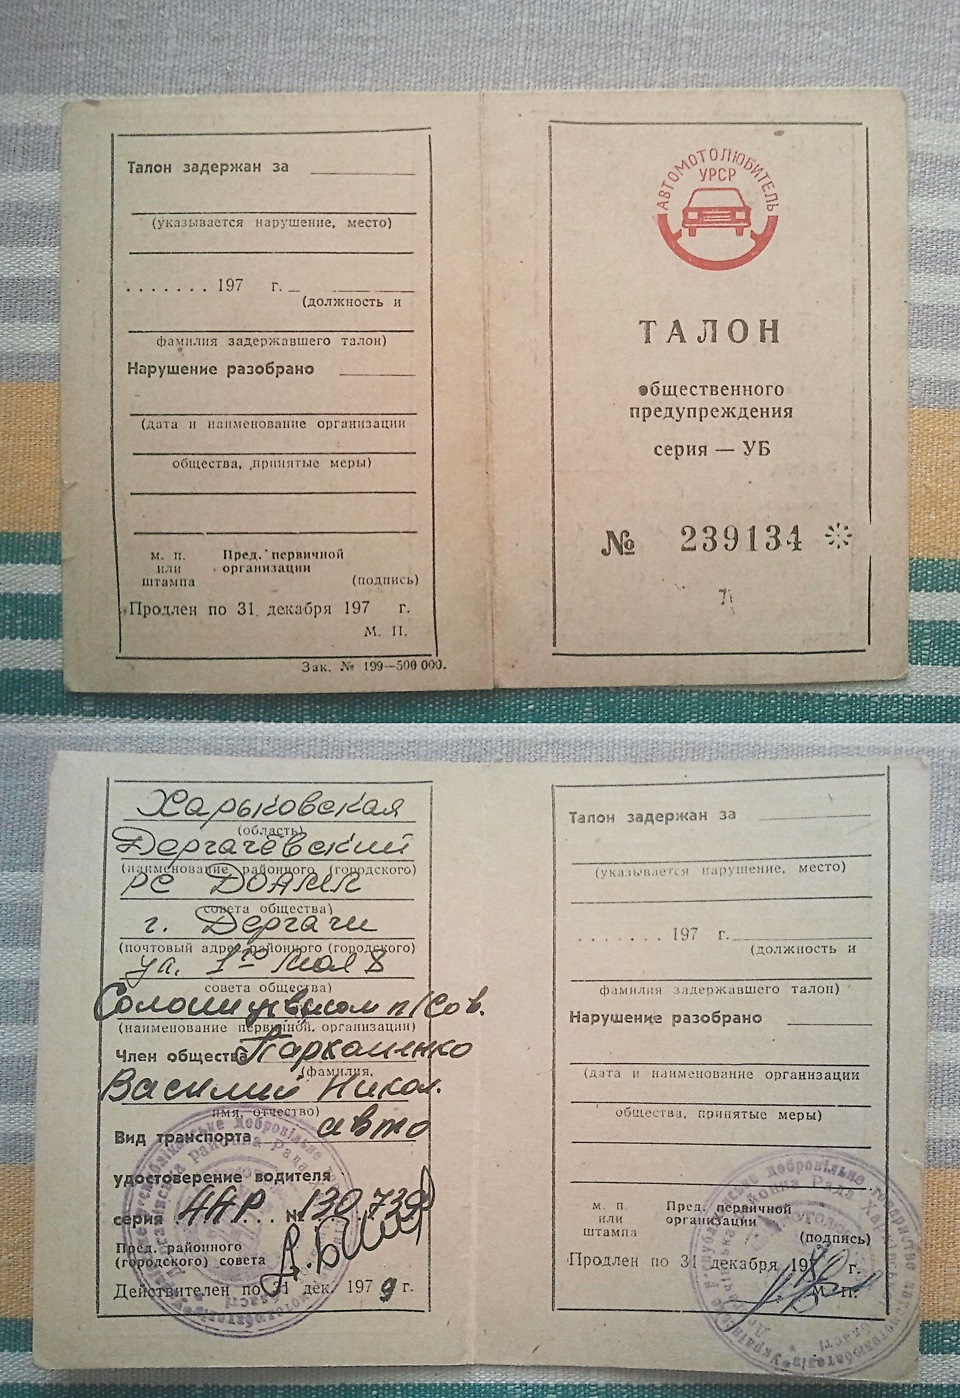 Талон задержан за
(указывается нарушение, место)
....... 197 г.
(должность и
фамилия задержавшего талон)
Нарушение разобрано
(дата и наименование организации
общества, принятые меры)
м. п. Пред. первичной
или организации
штампа (подпись)
Продлен по 31 декабря 197 г.
М. П.
Зак. № 199—500 000.
АВТОМОТОЛЮБИТЕЛЬ
УРСР
ТАЛОН
общественного
предупреждения
серия — УБ
№ 239134
Харьковская
(область)
Дергачевский
(наименование районного (городского)
РС ДОАМЛ
совета общества)
г. Дергачи
(почтовый адрес районного (городского)
ул. 1го Мая 8
совета общества)
п/Сов.
(наименование первичной организации)
Член общества Пархоменко
(фамилия,
Василий Никол.
имя, отчество)
Вид транспорта авто
удостоверение водителя
серия ААР № 130739
Пред. районного
(городского) совета
Действителен по 31 дек. 1979 г.
Талон задержан за
(указывается нарушение, место)
....... 197 г.
(должность и
фамилия задержавшего талон)
Нарушение разобрано
(дата и наименование организации
общества, принятые меры)
м. п. Пред. первичной
или организации
штампа (подпись)
Продлен по 31 декабря 197 г.
М. П.